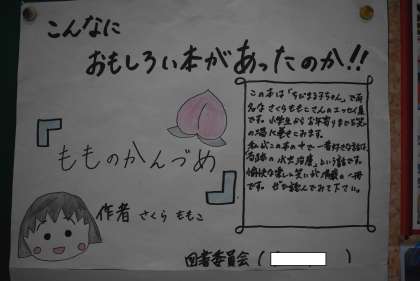 こんなに
おもしろい本があったのか!!
『もものかんづめ』
作者 さくら ももこ
この本は「ちびまる子ちゃん」で有
名なさくらももこさんのエッセイ集
です。小学生からお年寄りまでを笑
の渦に巻きこみます。
私がこの本の中で一番好きな話は、
奇跡の水虫治療」という話です。
愉快な楽しい笑いが満載の一冊
です。ぜひ読んでみて下さい。
図書委員会( )